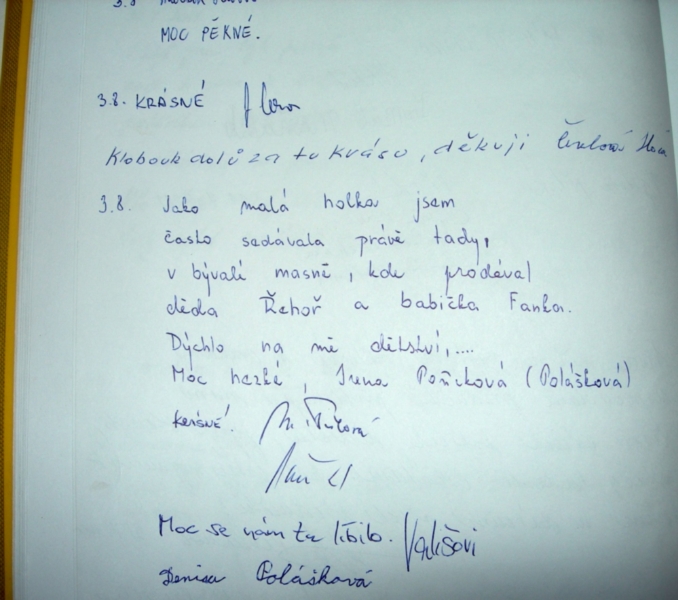 3.8
MOC PĚKNÉ.
3.8. KRÁSNÉ
Klobouk dolů za tu krásu, děkuji
3.8. Jako malá holka jsem
často sedávala právě tady,
v bývalé masně, kde prodával
děda Řehoř a babička Fanka.
Dýchlo na mě dětství,....
Moc hezké, Irena (Polášková)
KRÁSNÉ!
Moc se nám tu líbilo.
Denisa Polášková